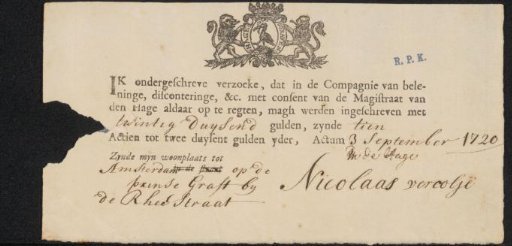 R. P. K.
IK ondergeschreve verzoeke, dat in de Compagnie van bele-
ninge, disconteringe, &c. met consent van de Magistraat van
den Hage aldaar op te regten, magh werden ingeschreven met
twinteg Duysend gulden, zynde tien
Actien tot twee duysent gulden yder, Actum 3 September 1720
In de Hage
Zynde myn woonplaats tot
Amsterdam op de
graft by
de Rhee Straat
Nicolaas